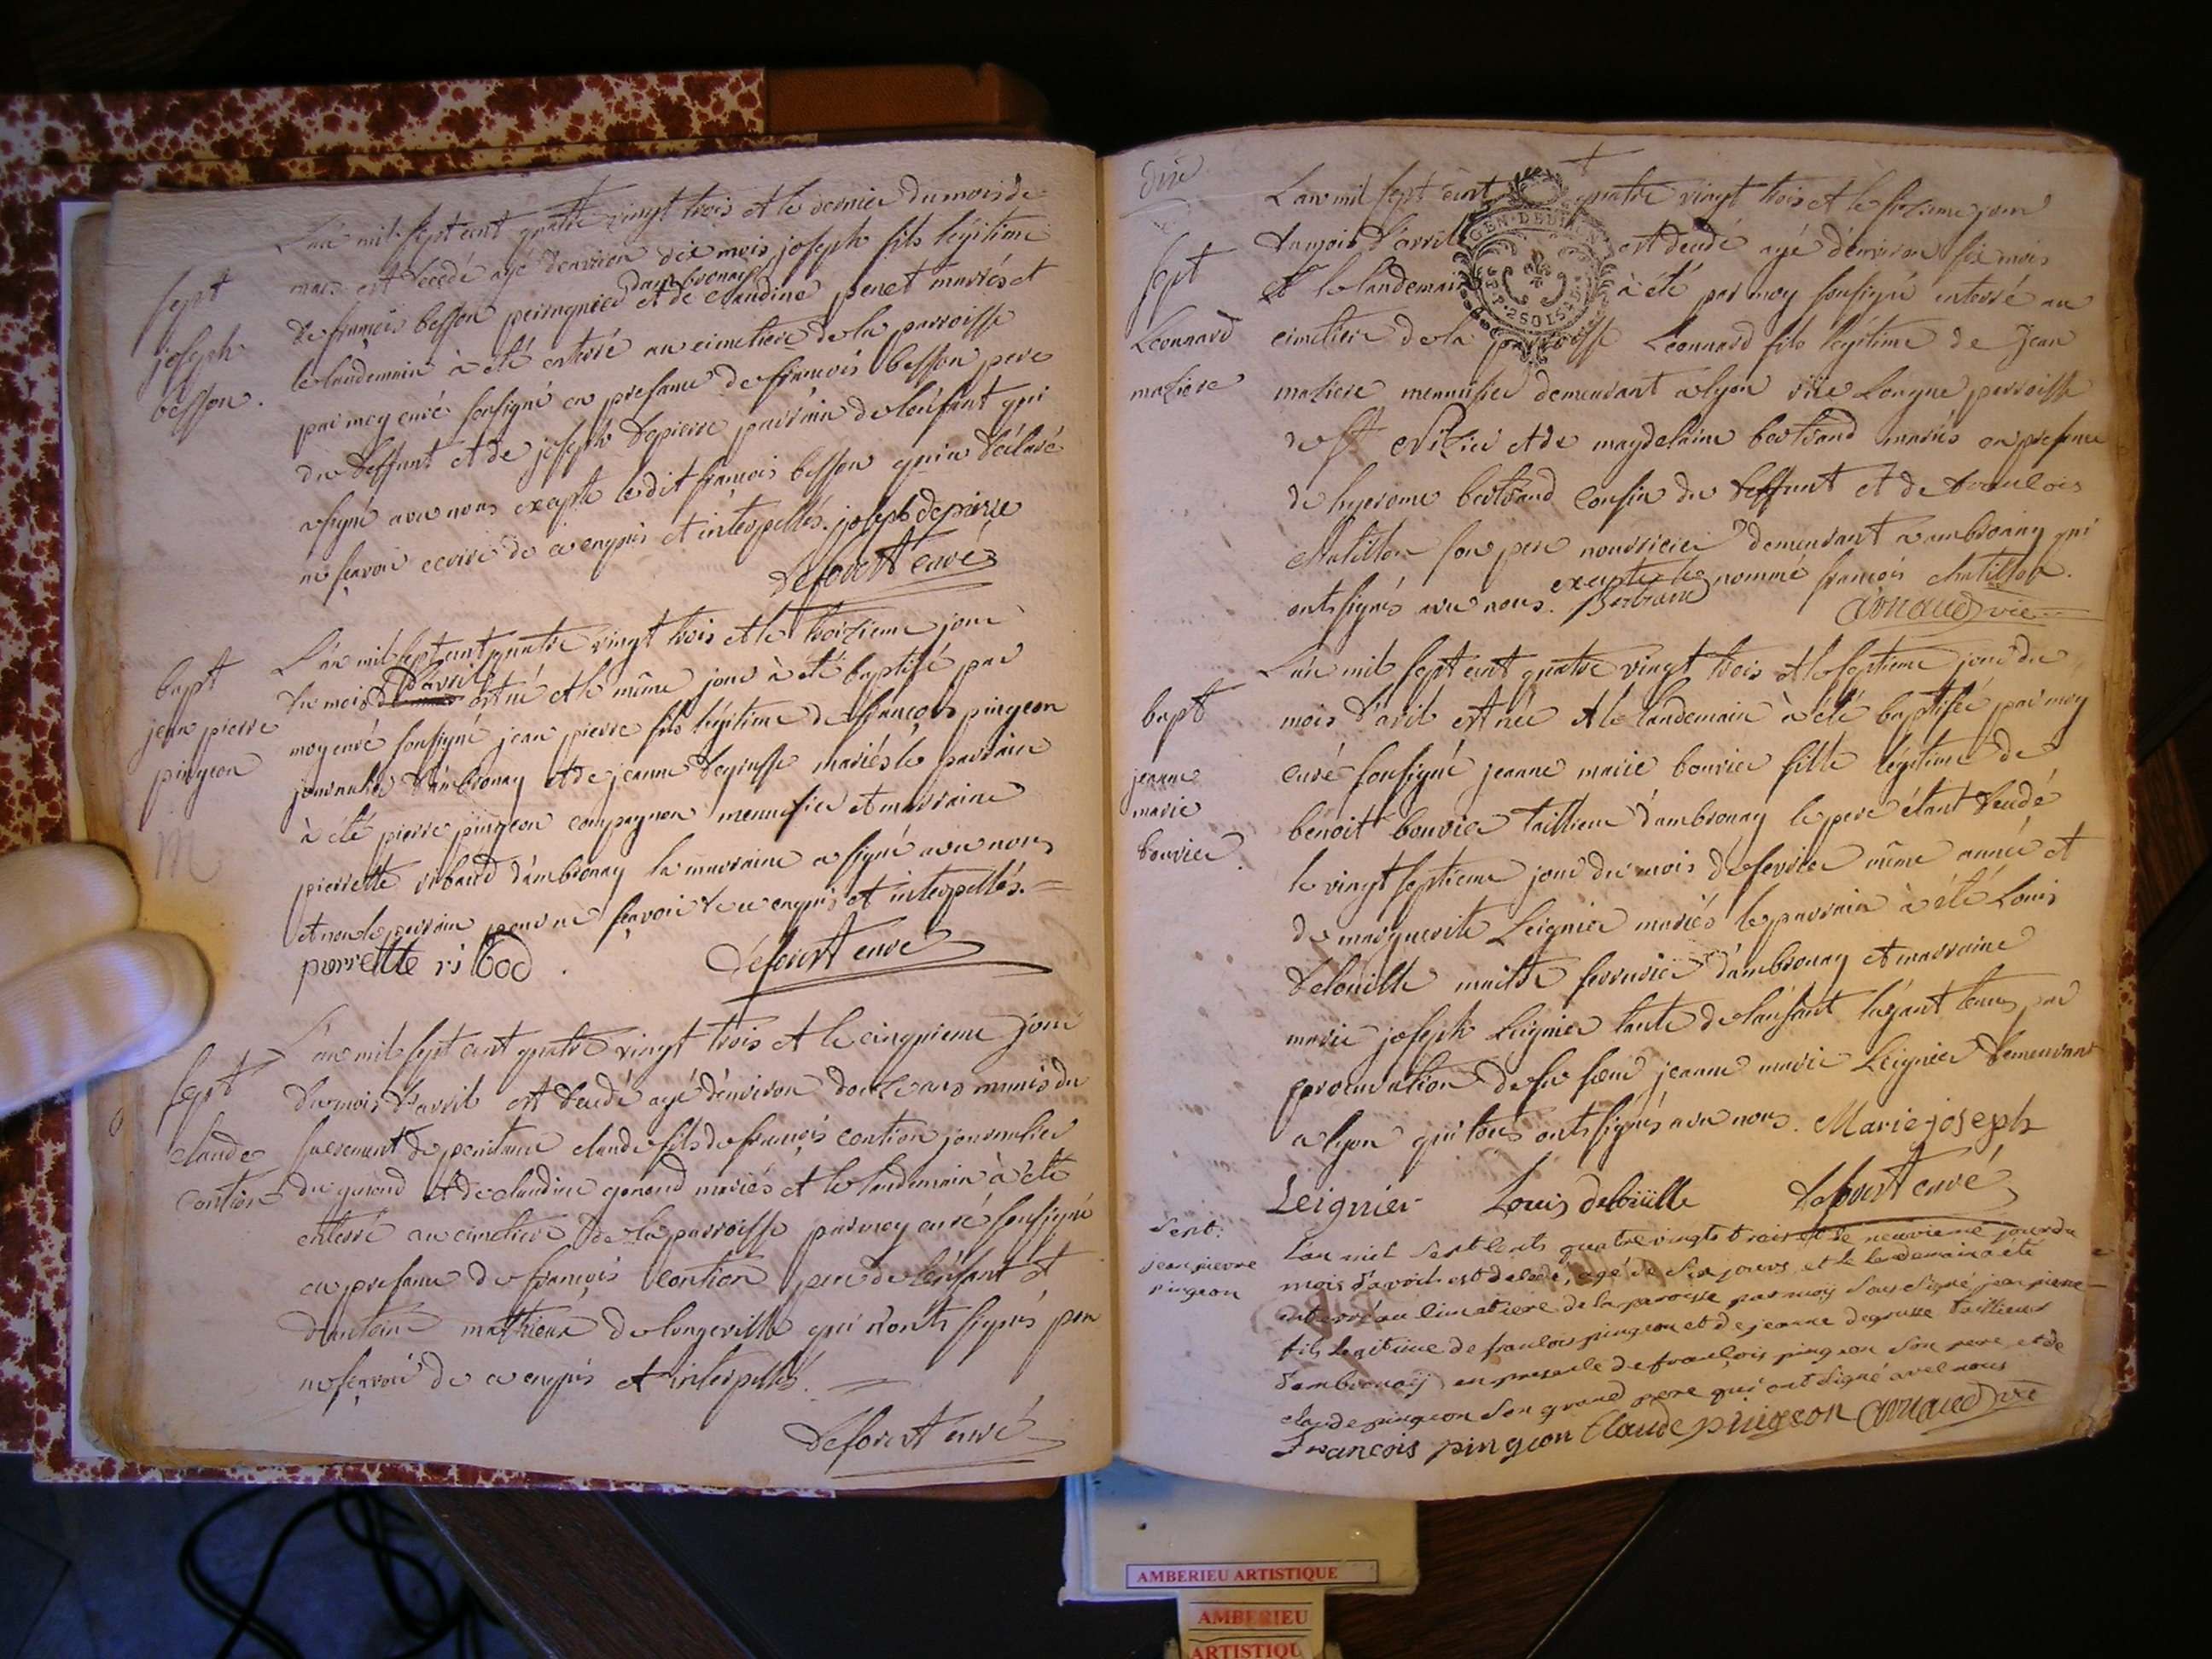 L'an mil sept cent quatre vingt trois et le dernier du mois de
mars est décédé agé d'environ dix mois joseph fils légitime
dambronay
de françois besson et de claudine penet mariés et
le landemain à été enterré au cimetiere de la parroisse
par moy curé sousigné en presance de françois besson pere
du deffunt et de joseph depierre parrain de l'enfant qui
a signé avec nous excepté ledit françois besson qui a déclaré
ne sçavoir ecrire de ce enquis et interpellés. joseph depierre
Deforest curé
sept
joseph
besson.
L'an mil sept cent quatre vingt trois et le troizieme jour
d'avril
du mois est né et le même jour à été baptisé par
moy curé sousigné jean pierre fils légitime de françois pingeon
journalier d'ambronay et de jeanne degrusse mariés le parrain
à été pierre pingeon compagnon menusier et marraine
pierrette ribaud d'ambronay la marraine a signé avec nous
et non le parrain pour ne sçavoir de ce enquis et interpellés.
pierrette ribod. Deforest curé
bapt
jean pierre
pingeon
M
L'an mil sept cent quatre vingt trois et le cinquieme jour
du mois d'avril est décédé agé d'environ douze ans munis du
sacrement de penitance claude fils de françois contion journalier
du genoud et de claudine genoud mariés et le landemain à été
enterré au cimetiere de la parroisse par moy curé sousigné
en presance de françois contion pere de l'enfant et
d'antoine mathieux de longeville qui n'onts signés pour
ne sçavoir de ce enquis et interpellés.
Deforest curé
sept
claude
contion
dix
L'an mil sept cent quatre vingt trois et le sixieme jour
du mois d'avril est décédé agé d'environ six mois
et le landemain à été par moy sousigné enterré au
cimetiere de la parroisse Léonnard fils légitime de Jean
maziere mennusier demeurant a lyon rüe Longue parroisse
de st Nizier et de magdelaine bertrand mariés en presance
de hyerome bertrand cousin du deffunt et de francois
chatillon son pere nourricier demeurant a ambronay qui
excepté le nommé françois chatillon.
onts signés avec nous. Bertrand Arnaud vic
GEN. DE DIJON
sept
Léonnard
maziere
L'an mil sept cent quatre vingt trois et le septieme jour du
mois d'avril est née et le landemain à été baptisée par moy
curé sousigné jeanne marie bouvier fille légitime de
benoit bouvier taillieur d'ambronay le pere étant décédé
le vingt septieme jour du mois de fevrier même année et
de marguerite Leignier mariés le parrain à été Louis
Delouille maitre serrurier d'ambronay et marraine
marie joseph Leignier tante de l'enfant layant tenus par
procuration de sa soeur jeanne marie Leignier demeurant
a lyon qui tous onts signés avec nous. Marie joseph
Leignier Louis delouille Deforest curé
bapt
jeanne
marie
bouvier.
L'an mil sept cents quatre vingts trois et le neuvieme jour du
mois d'avril est decedé, agé de six jours et le lendemain a été
enterré au cimetiere de la paroisse par moy sous signé jean pierre
fils legitime de francois pingeon et de jeanne degrusse taillieur
d'ambronay en presence de francois pingeon son pere et de
claude pingeon son grand pere qui ont signé avec nous
François pingeon Claude pingeon Arnaud vic
sept.
jean pierre
pingeon
AMBERIEU ARTISTIQUE
AMBERIEU
ARTISTIQU